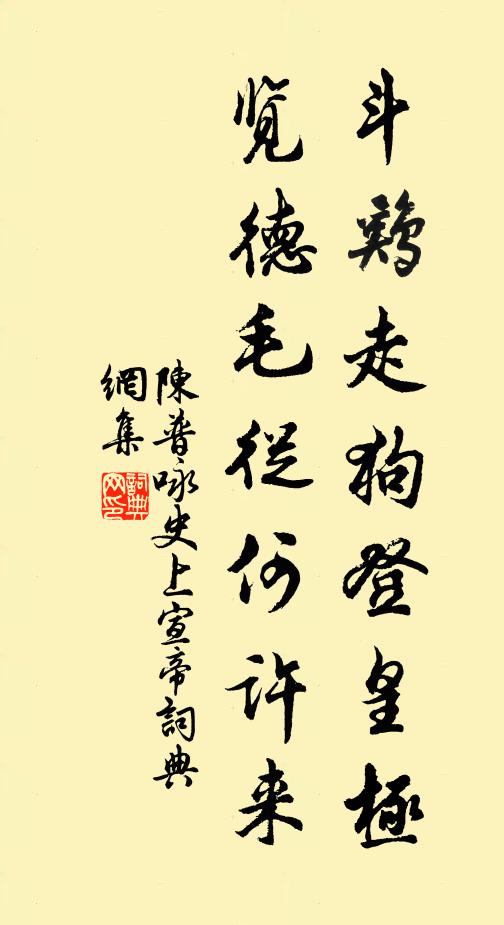 斗鷄走狗登皇極
覽德毛從何許来
陳普咏史上宣帝詞典
網集
詞典
网印